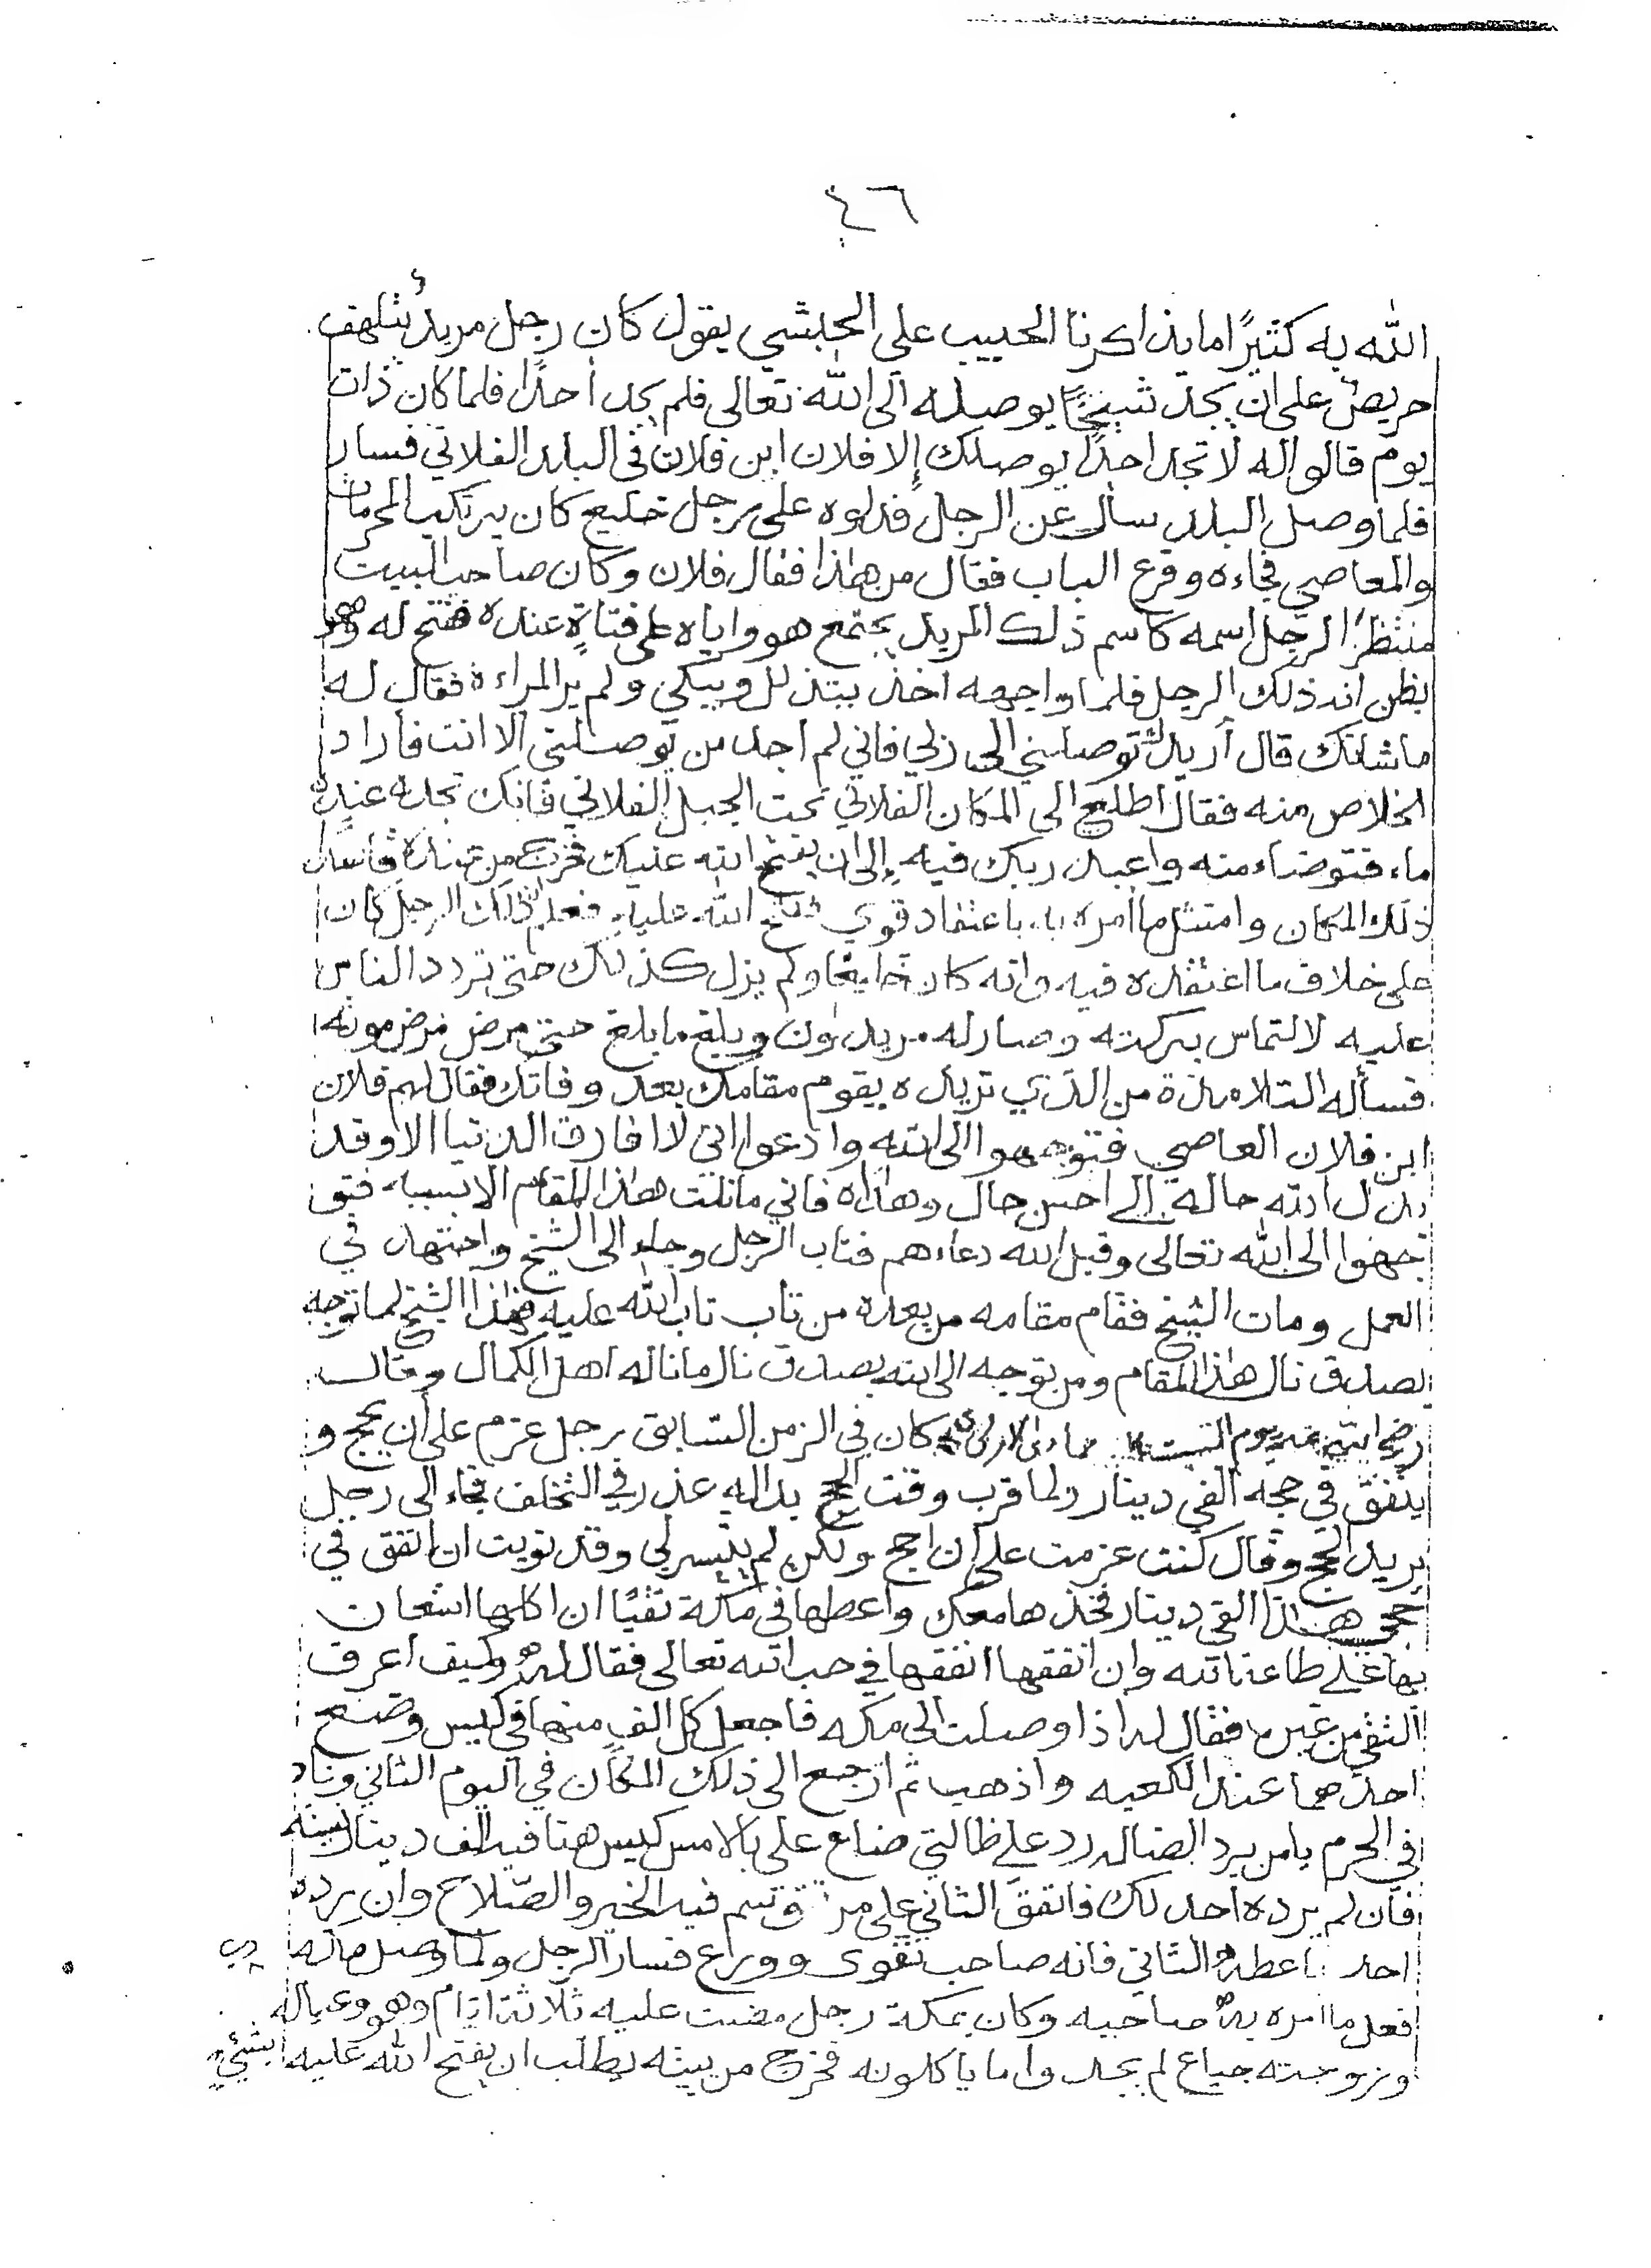 ٤٦
الله به كثيرًا ما يذاكرنا الحبيب علي الحبشي يقول كان رجل مريد يتلهف
حريص على ان يجد شيخًا يوصله الى الله تعالى فلم يجد أحدًا فلما كان ذات
يوم قالوا له لا تجد احدًا يوصلك إلا فلان ابن فلان في البلد الفلاني فسار
فلما وصل البلد سأل عن الرجل فدلوه على رجل خليع كان يرتكب المحرمات
والمعاصي فجاءه وقرع الباب فقال من هذا فقال فلان وكان صاحب البيت
منتظرًا لرجل اسمه كاسم ذلك المريد يجتمع هو واياه على فتاةٍ عنده ففتح له وهو
يظن انه ذلك الرجل فلما واجهه اخذ يتذلل ويبكي ولم ير المراءة فقال له
ما شانك قال أريدك توصلني الى ربي فاني لم اجد من يوصلني الا انت فأراد
الخلاص منه فقال اطلع الى المكان الفلاني تحت الجبل الفلاني فانك تجد عنده
ماء فتوضاء منه واعبد ربك فيه إلى ان يفتح الله عليك فخرج من عنده قاصدا
ذلك المكان وامتثل ما أمره به باعتقاد قوي ففتح الله عليه فعلم ان ذلك الرجل كان
على خلاف ما اعتقده فيه وانه كان خليعًا ولم يزل كذلك حتى تردد الناس
عليه لالتماس بركته وصار له مريدون وبلغ ما بلغ حتى مرض مرض موته
فسأله التلامذة من الذي تريده يقوم مقامك بعد وفاتك فقال لهم فلان
ابن فلان العاصي فتوجهوا الى الله وادعوا اني لا افارق الدنيا الا وقد
بدل الله حاله إلى احسن حال وهداه فاني ما نلت هذا المقام الا بسببه فتو
جهوا الى الله تعالى وقبل الله دعاءهم فتاب الرجل وجاء الى الشيخ واجتهد في
العمل ومات الشيخ فقام مقامه من بعده من تاب تاب الله عليه فهذا الشيخ لما توجه
بصدق نال هذا المقام ومن يتوجه الى الله بصدق نال ما ناله اهل الكمال وقال
رضي الله عنه يوم السبت جماد الاولى كان في الزمن السابق رجل عزم على أن يحج و
ينفق في حجه الفي دينار ولما قرب وقت الحج بدا له عذر في التخلف فجاء الى رجل
يريد الحج وقال كنت عزمت على ان احج ولكن لم يتيسر لي وقد نويت ان انفق في
حجي هذا الفي دينار فخذها معك واعطها في مكة تقيًا ان اكلها استعان
بها على طاعة الله وان انفقها انفقها في حب الله تعالى فقال له وكيف اعرف
التقي من غيره فقال له اذا وصلت الى مكه فاجعل كل الف منها في كيس وضع
احدهما عند الكعبه واذهب ثم ارجع الى ذلك المكان في اليوم الثاني وناد
في الحرم يا من يرد الضاله رد علي ظالتي ضاع علي بالامس كيس هنا فيه الف دينار
فان لم يرده احد لك فانفق الثاني على من تتوسم فيه الخير والصّلاح وان يرده
احد اعطه الثاني فانه صاحب تقوى وورع فسار الرجل ولما وصل مكه
فعل ما امره به صاحبه وكان بمكة رجل مضت عليه ثلاثة ايام وهو وعياله
وزوجته جياع لم يجدوا ما ياكلونه فخرج من بيته يطلب ان يفتح الله عليه بشيءٍ